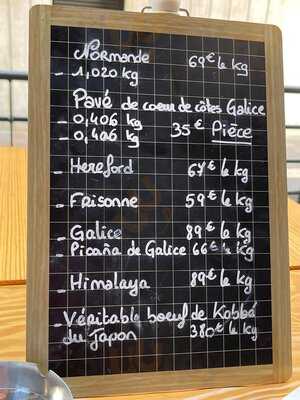 Normande 69€ le kg
- 1,020 kg
Pavé de coeur de côtes Galice
- 0,406 kg
- 0,406 kg 35€ Pièce
- Hereford 67€ le kg
- Frisonne 59€ le kg
- Galice 89€ le kg
- Picaña de Galice 66€ le kg
- Himalaya 89€ le kg
- Véritable boeuf de Kobbé
du Japon 380€ le kg